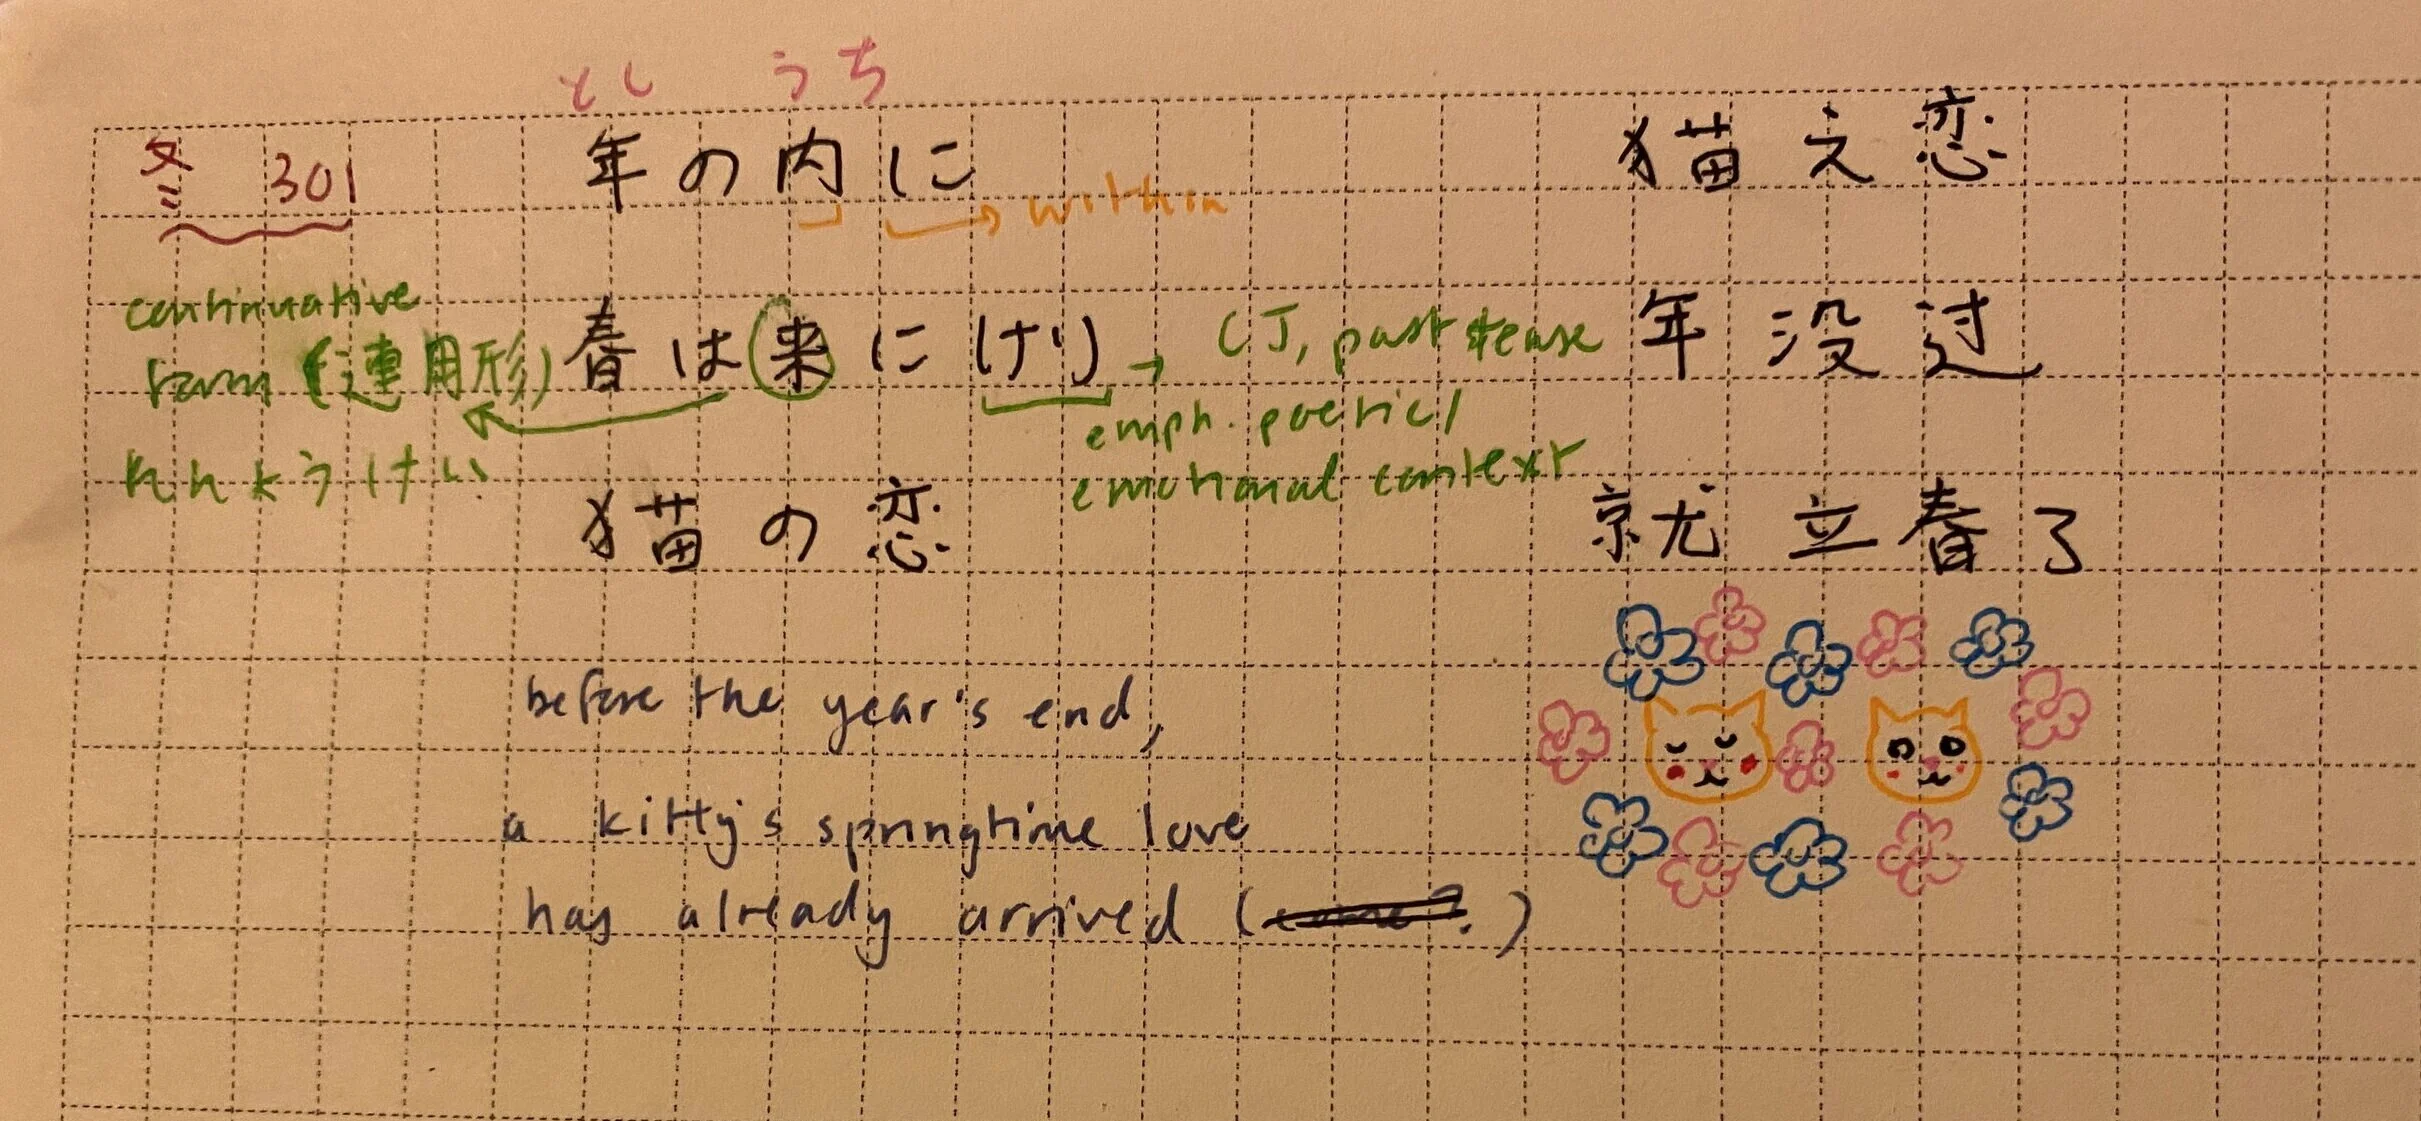 とし うち
冬 301
年の内に
within
猫之恋
continuative
form (連用形)
れんようけい
春は来にけり
CJ, past tense
emph. poetic/
emotional context
年没过
猫の恋
就立春了
before the year's end,
a kitty's springtime love
has already arrived ( )